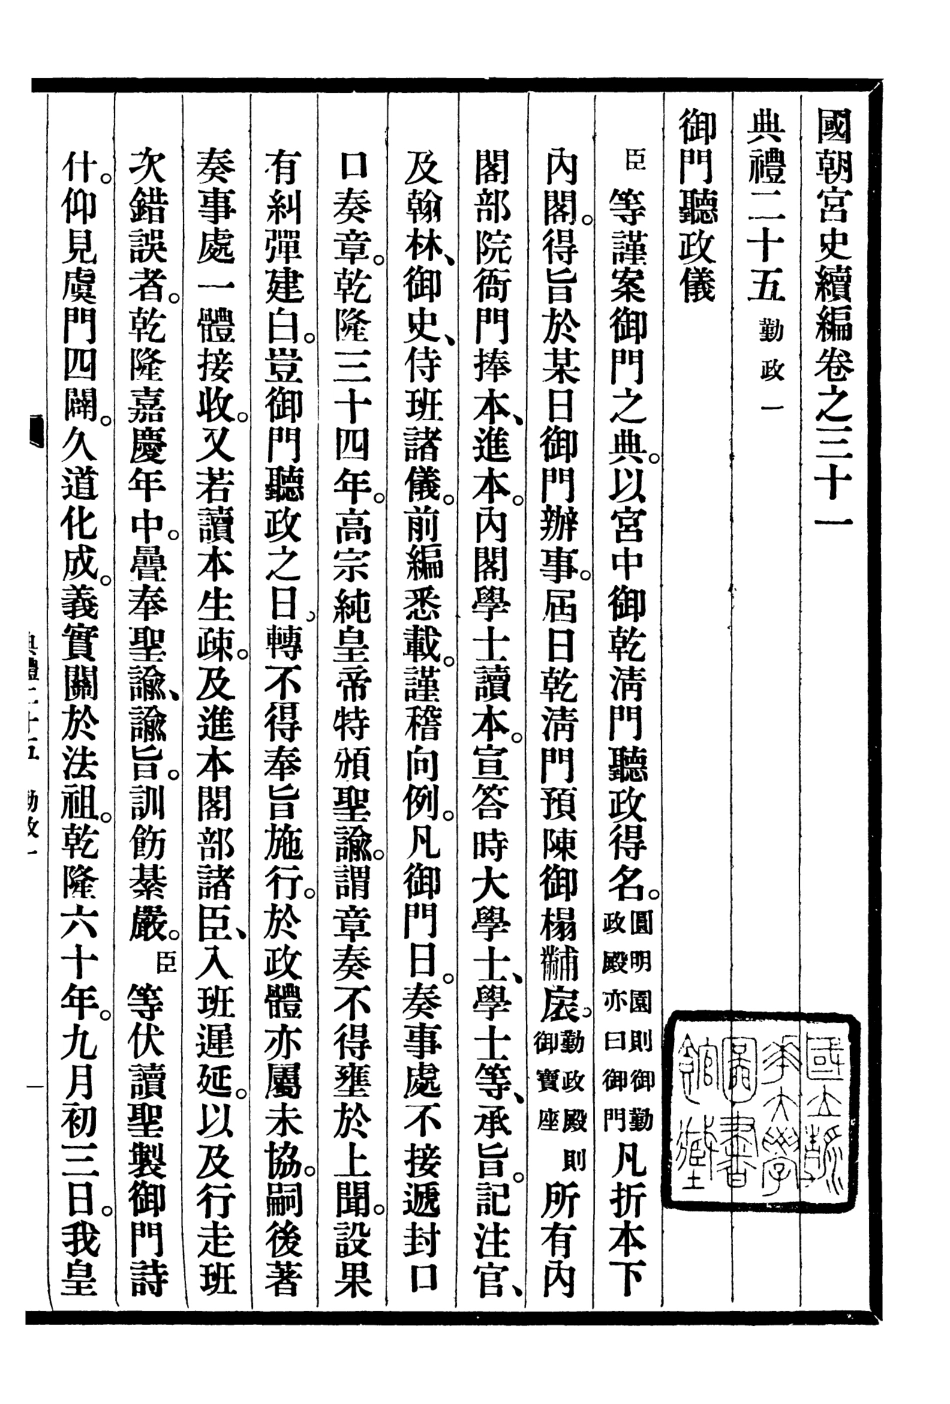 國朝宮史續編卷之三十一
典禮二十五 勤政一
御門聽政儀
臣等謹案御門之典。以宮中御乾淸門聽政得名。圓明園則御勤政殿亦曰御門凡折本下
內閣。得旨於某日御門辦事。屆日乾淸門預陳御榻黼扆。勤政殿則御寶座所有內
閣部院衙門捧本、進本。內閣學士讀本。宣答時大學士、學士等、承旨。記注官、
及翰林、御史、侍班諸儀。前編悉載。謹稽向例。凡御門日。奏事處不接遞封口
口奏章。乾隆三十四年。高宗純皇帝特頒聖諭。謂章奏不得壅於上聞。設果
有糾彈建白。豈御門聽政之日。轉不得奉旨施行。於政體亦屬未協。嗣後著
奏事處一體接收。又若讀本生疎。及進本閣部諸臣、入班遲延。以及行走班
次錯誤者。乾隆嘉慶年中。疊奉聖諭、諭旨。訓飭綦嚴。臣等伏讀聖製御門詩
什。仰見虞門四闢。久道化成。義實關於法祖。乾隆六十年。九月初三日。我皇
典禮二十五 勤政一
一
國立清華大學圖書館藏